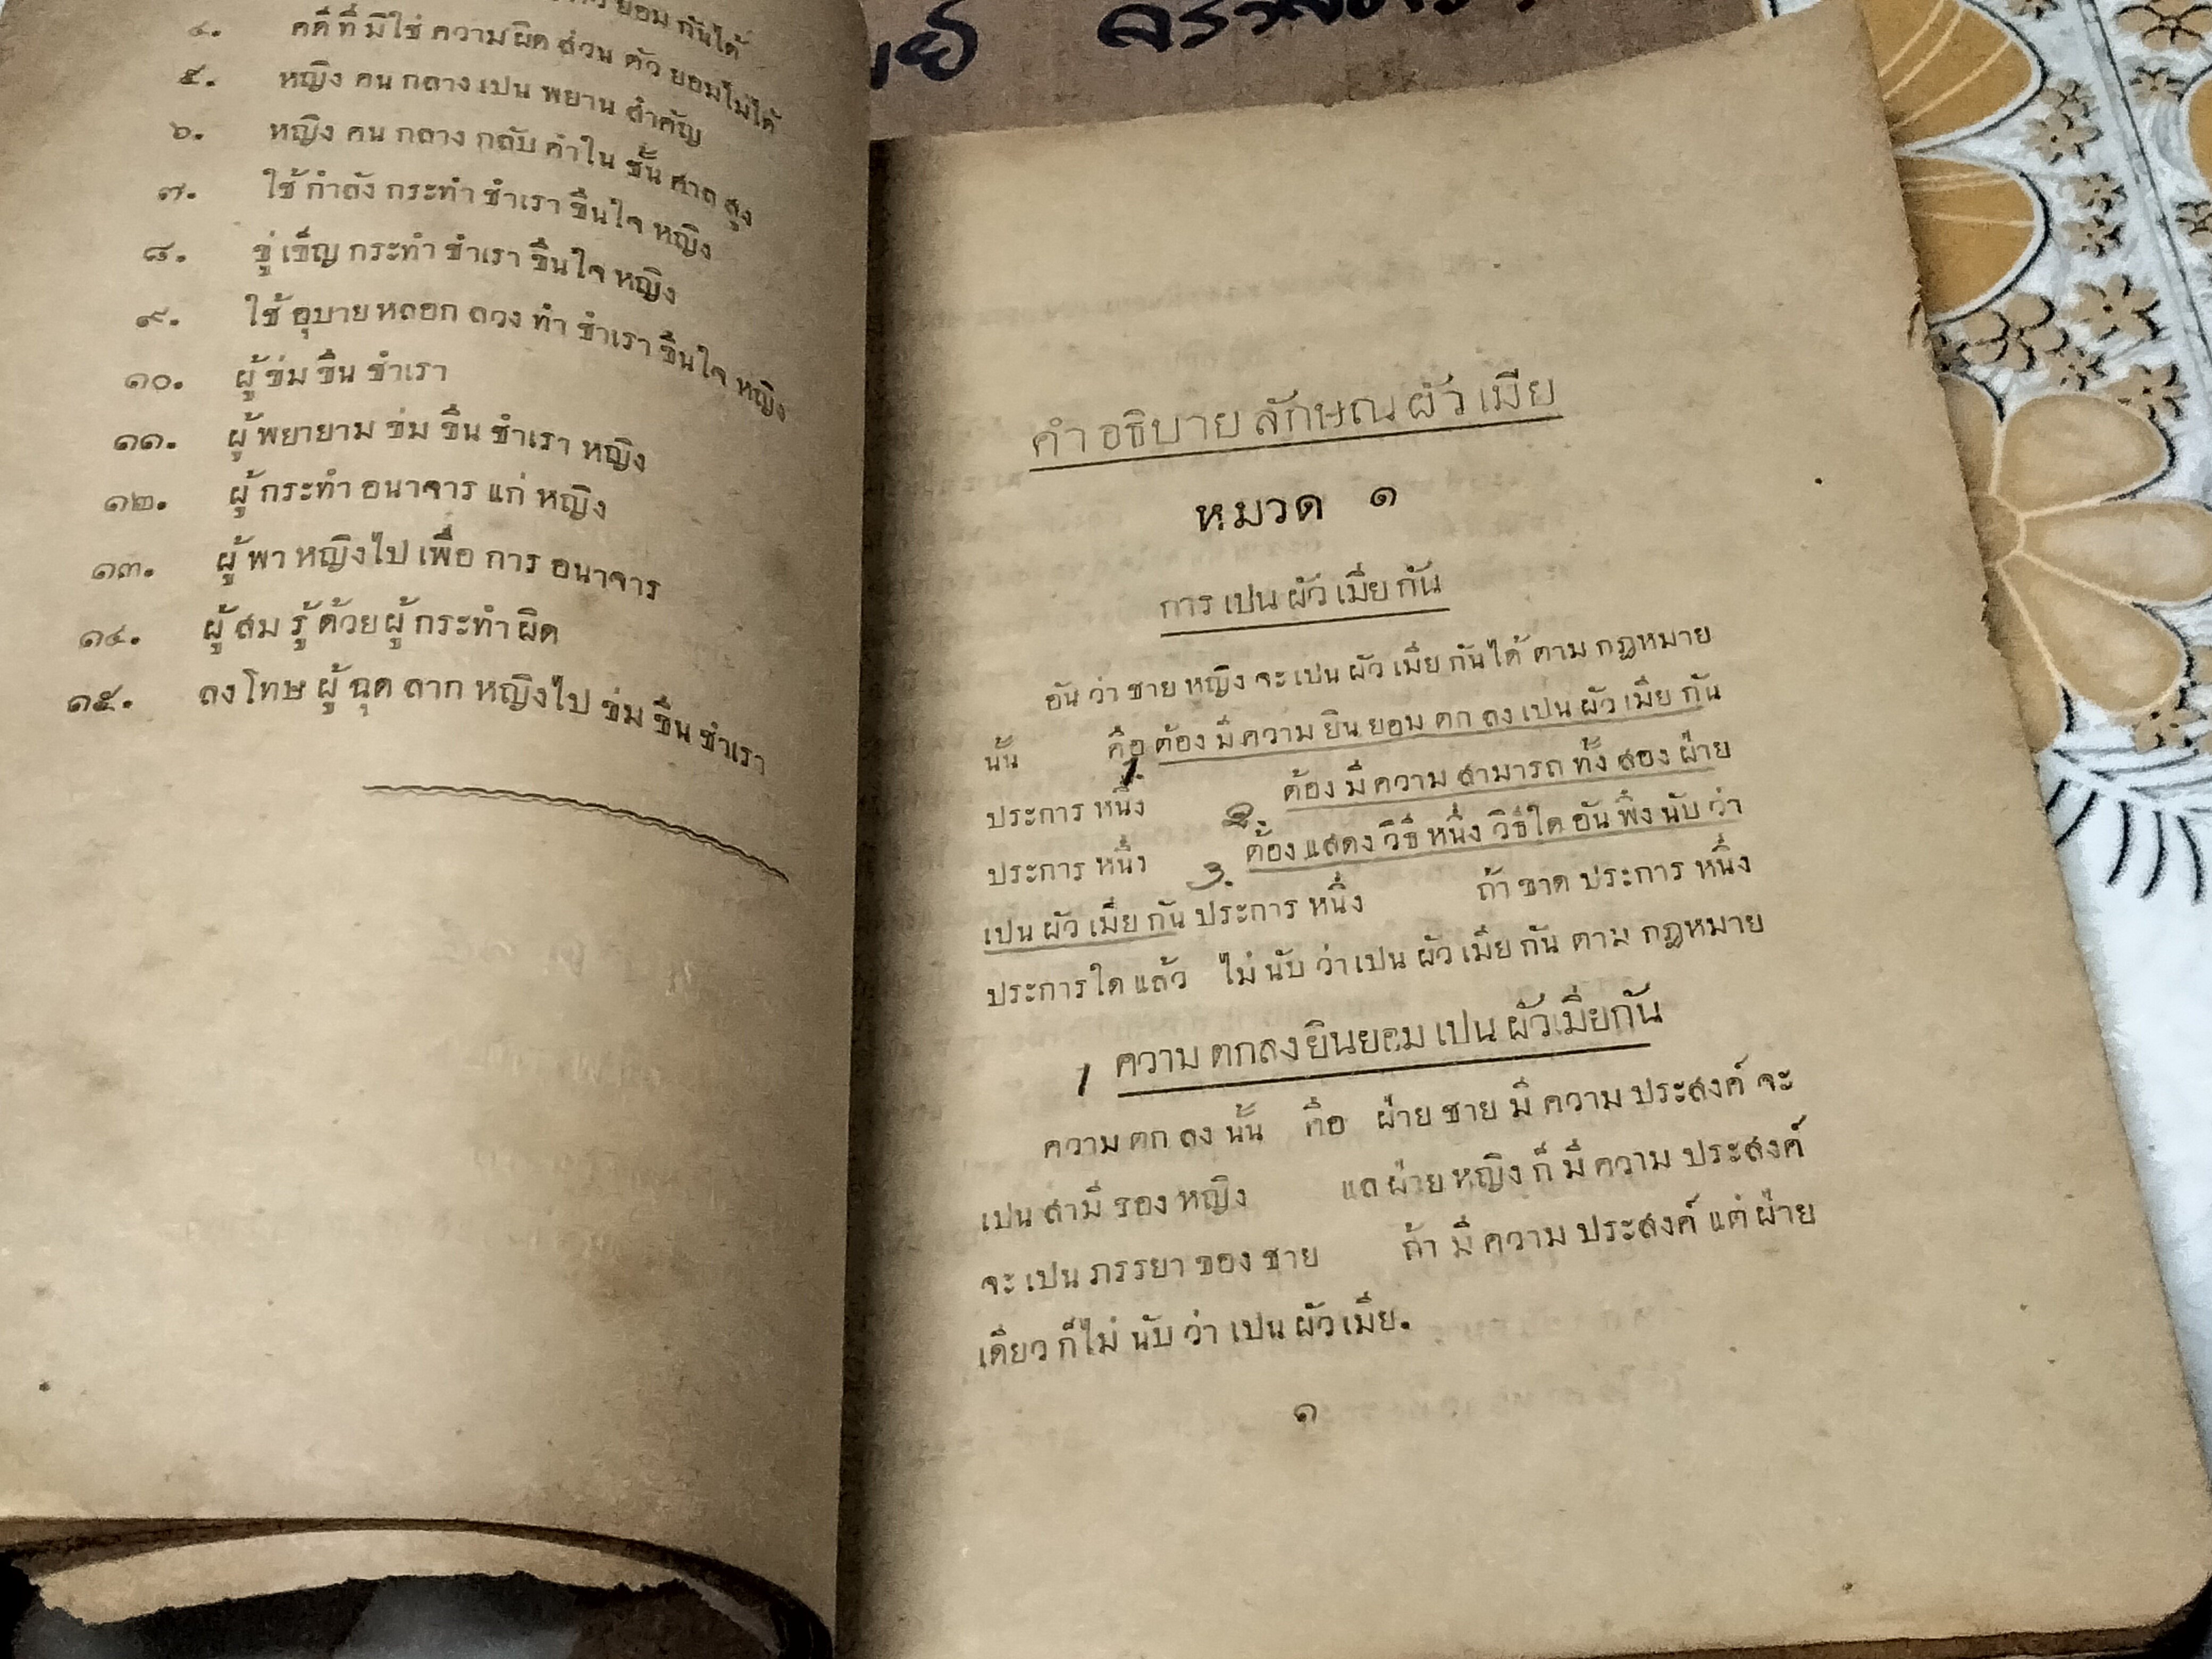 ยอม กันได้
๔. คดี ที่ มิใช่ ความ ผิด ส่วน ตัว ยอมไม่ได้
๕. หญิง คน กลาง เปน พยาน สำคัญ
๖. หญิง คน กลาง กลับ คำ ใน ชั้น ศาล สูง
๗. ใช้ กำลัง กระทำ ชำเรา ขืนใจ หญิง
๘. ขู่ เข็ญ กระทำ ชำเรา ขืนใจ หญิง
๙. ใช้ อุบาย หลอก ลวง ทำ ชำเรา ขืนใจ หญิง
๑๐. ผู้ ข่ม ขืน ชำเรา
๑๑. ผู้ พยายาม ข่ม ขืน ชำเรา หญิง
๑๒. ผู้ กระทำ อนาจาร แก่ หญิง
๑๓. ผู้ พา หญิงไป เพื่อ การ อนาจาร
๑๔. ผู้ สม รู้ ด้วย ผู้ กระทำ ผิด
๑๕. ลง โทษ ผู้ ฉุด ลาก หญิงไป ข่ม ขืน ชำเรา
คำ อธิบาย ลักษณ ผัว เมีย
หมวด ๑
การ เปน ผัว เมีย กัน
อัน ว่า ชาย หญิง จะ เปน ผัว เมีย กัน ได้ ตาม กฎหมาย
นั้น คือ ต้อง มี ความ ยิน ยอม ตก ลง เปน ผัว เมีย กัน
1.
ประการ หนึ่ง 2. ต้อง มี ความ สามารถ ทั้ง สอง ฝ่าย
ประการ หนึ่ง 3. ต้อง แสดง วิธี หนึ่ง วิธี ใด อัน พึง นับ ว่า
เปน ผัว เมีย กัน ประการ หนึ่ง ถ้า ขาด ประการ หนึ่ง
ประการ ใด แล้ว ไม่ นับ ว่า เปน ผัว เมีย กัน ตาม กฎหมาย
1 ความ ตกลง ยินยอม เปน ผัวเมียกัน
ความ ตก ลง นั้น คือ ฝ่าย ชาย มี ความ ประสงค์ จะ
เปน สามี ของ หญิง แล ฝ่าย หญิง ก็ มี ความ ประสงค์
จะ เปน ภรรยา ของ ชาย ถ้า มี ความ ประสงค์ แต่ ฝ่าย
เดียว ก็ไม่ นับ ว่า เปน ผัว เมีย.
๑